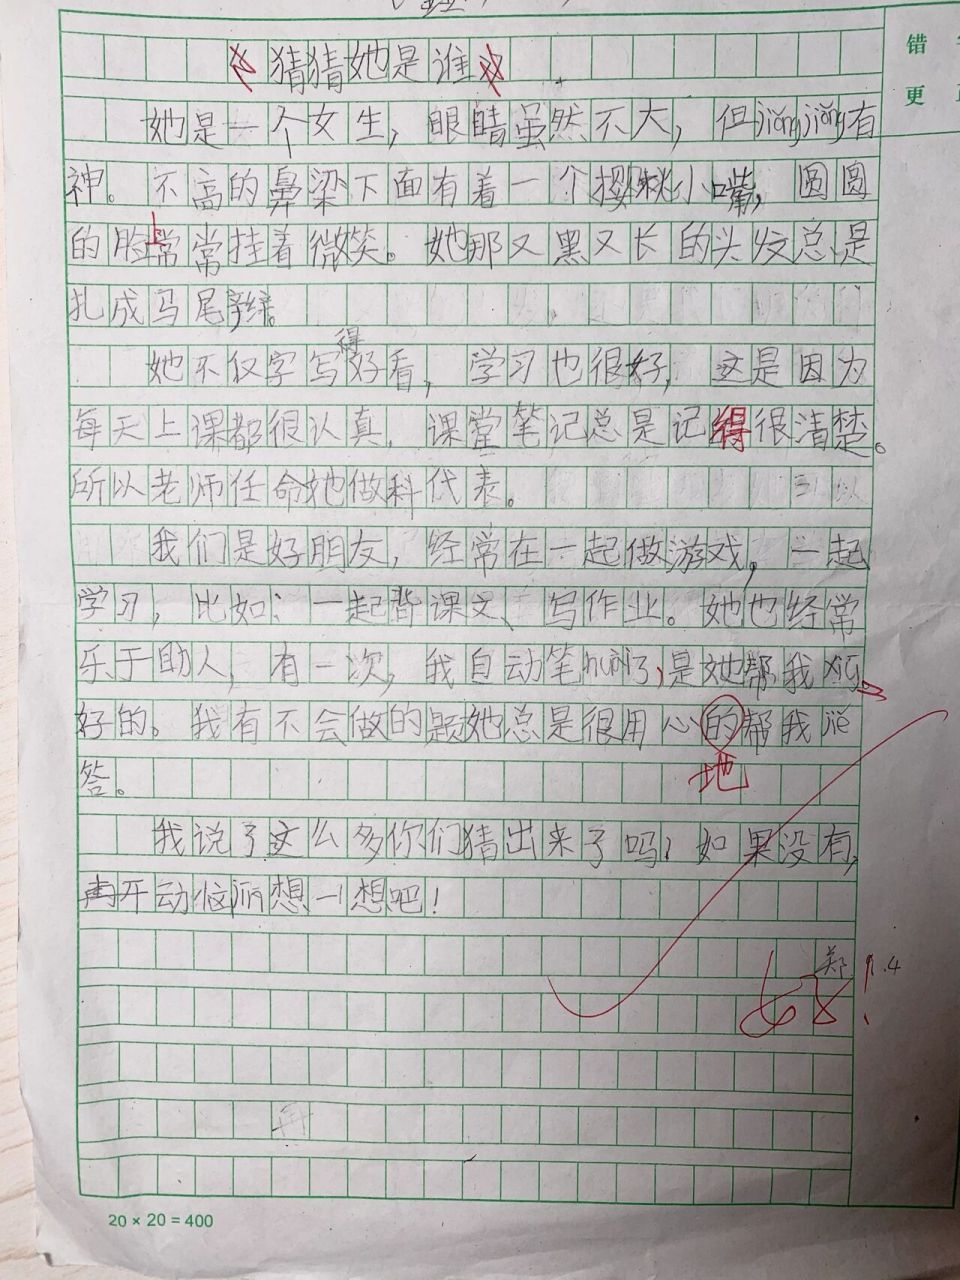 错
更
猜猜她是谁
她是一个女生，眼睛虽然不大，但jiǒngjiǒng有
神。不高的鼻梁下面有着一个樱桃小嘴，圆圆
的脸上常常挂着微笑。她那又黑又长的头发总是
扎成马尾辫。
她不仅字写得好看，学习也很好，这是因为
每天上课都很认真，课堂笔记总是记得很清楚。
所以老师任命她做科代表。
我们是好朋友，经常在一起做游戏，一起
学习，比如：一起背课文、写作业。她也经常
乐于助人，有一次，我自动笔huài了，是她帮我
好的。我有不会做的题她总是很用心的帮我
地
答。
我说了这么多你们猜出来了吗？如果没有，
再开动脑筋想一想吧！
郑 9.4
20 × 20 = 400